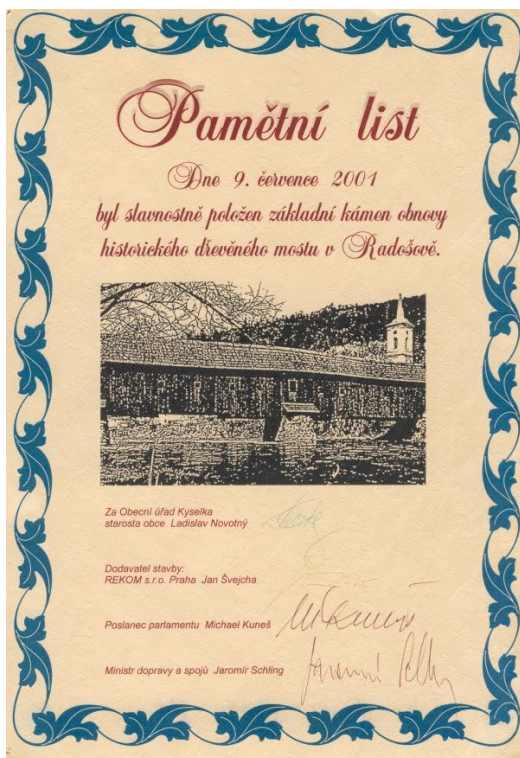 Pamětní list
Dne 9. července 2001
byl slavnostně položen základní kámen obnovy
historického dřevěného mostu v Radošově.
Za Obecní úřad Kyselka
starosta obce Ladislav Novotný
Dodavatel stavby:
REKOM s.r.o. Praha Jan Švejcha
Poslanec parlamentu Michael Kuneš
Ministr dopravy a spojů Jaromír Schling